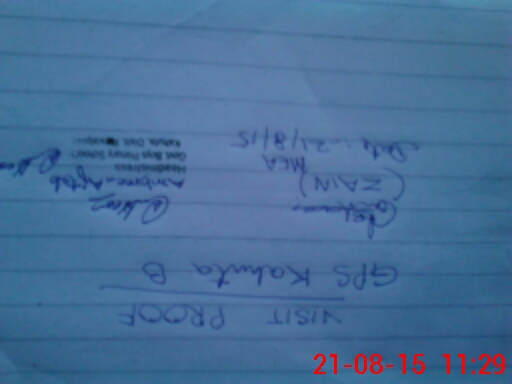 VISIT PROOF
GPS Kahuta B
(ZAIN)
MEA
Date: 21/8/15
Ambreen Aftab
Headmistress
Govt. Boys Primary School
Kahuta, Distt. Rawalpindi
21-08-15 11:29